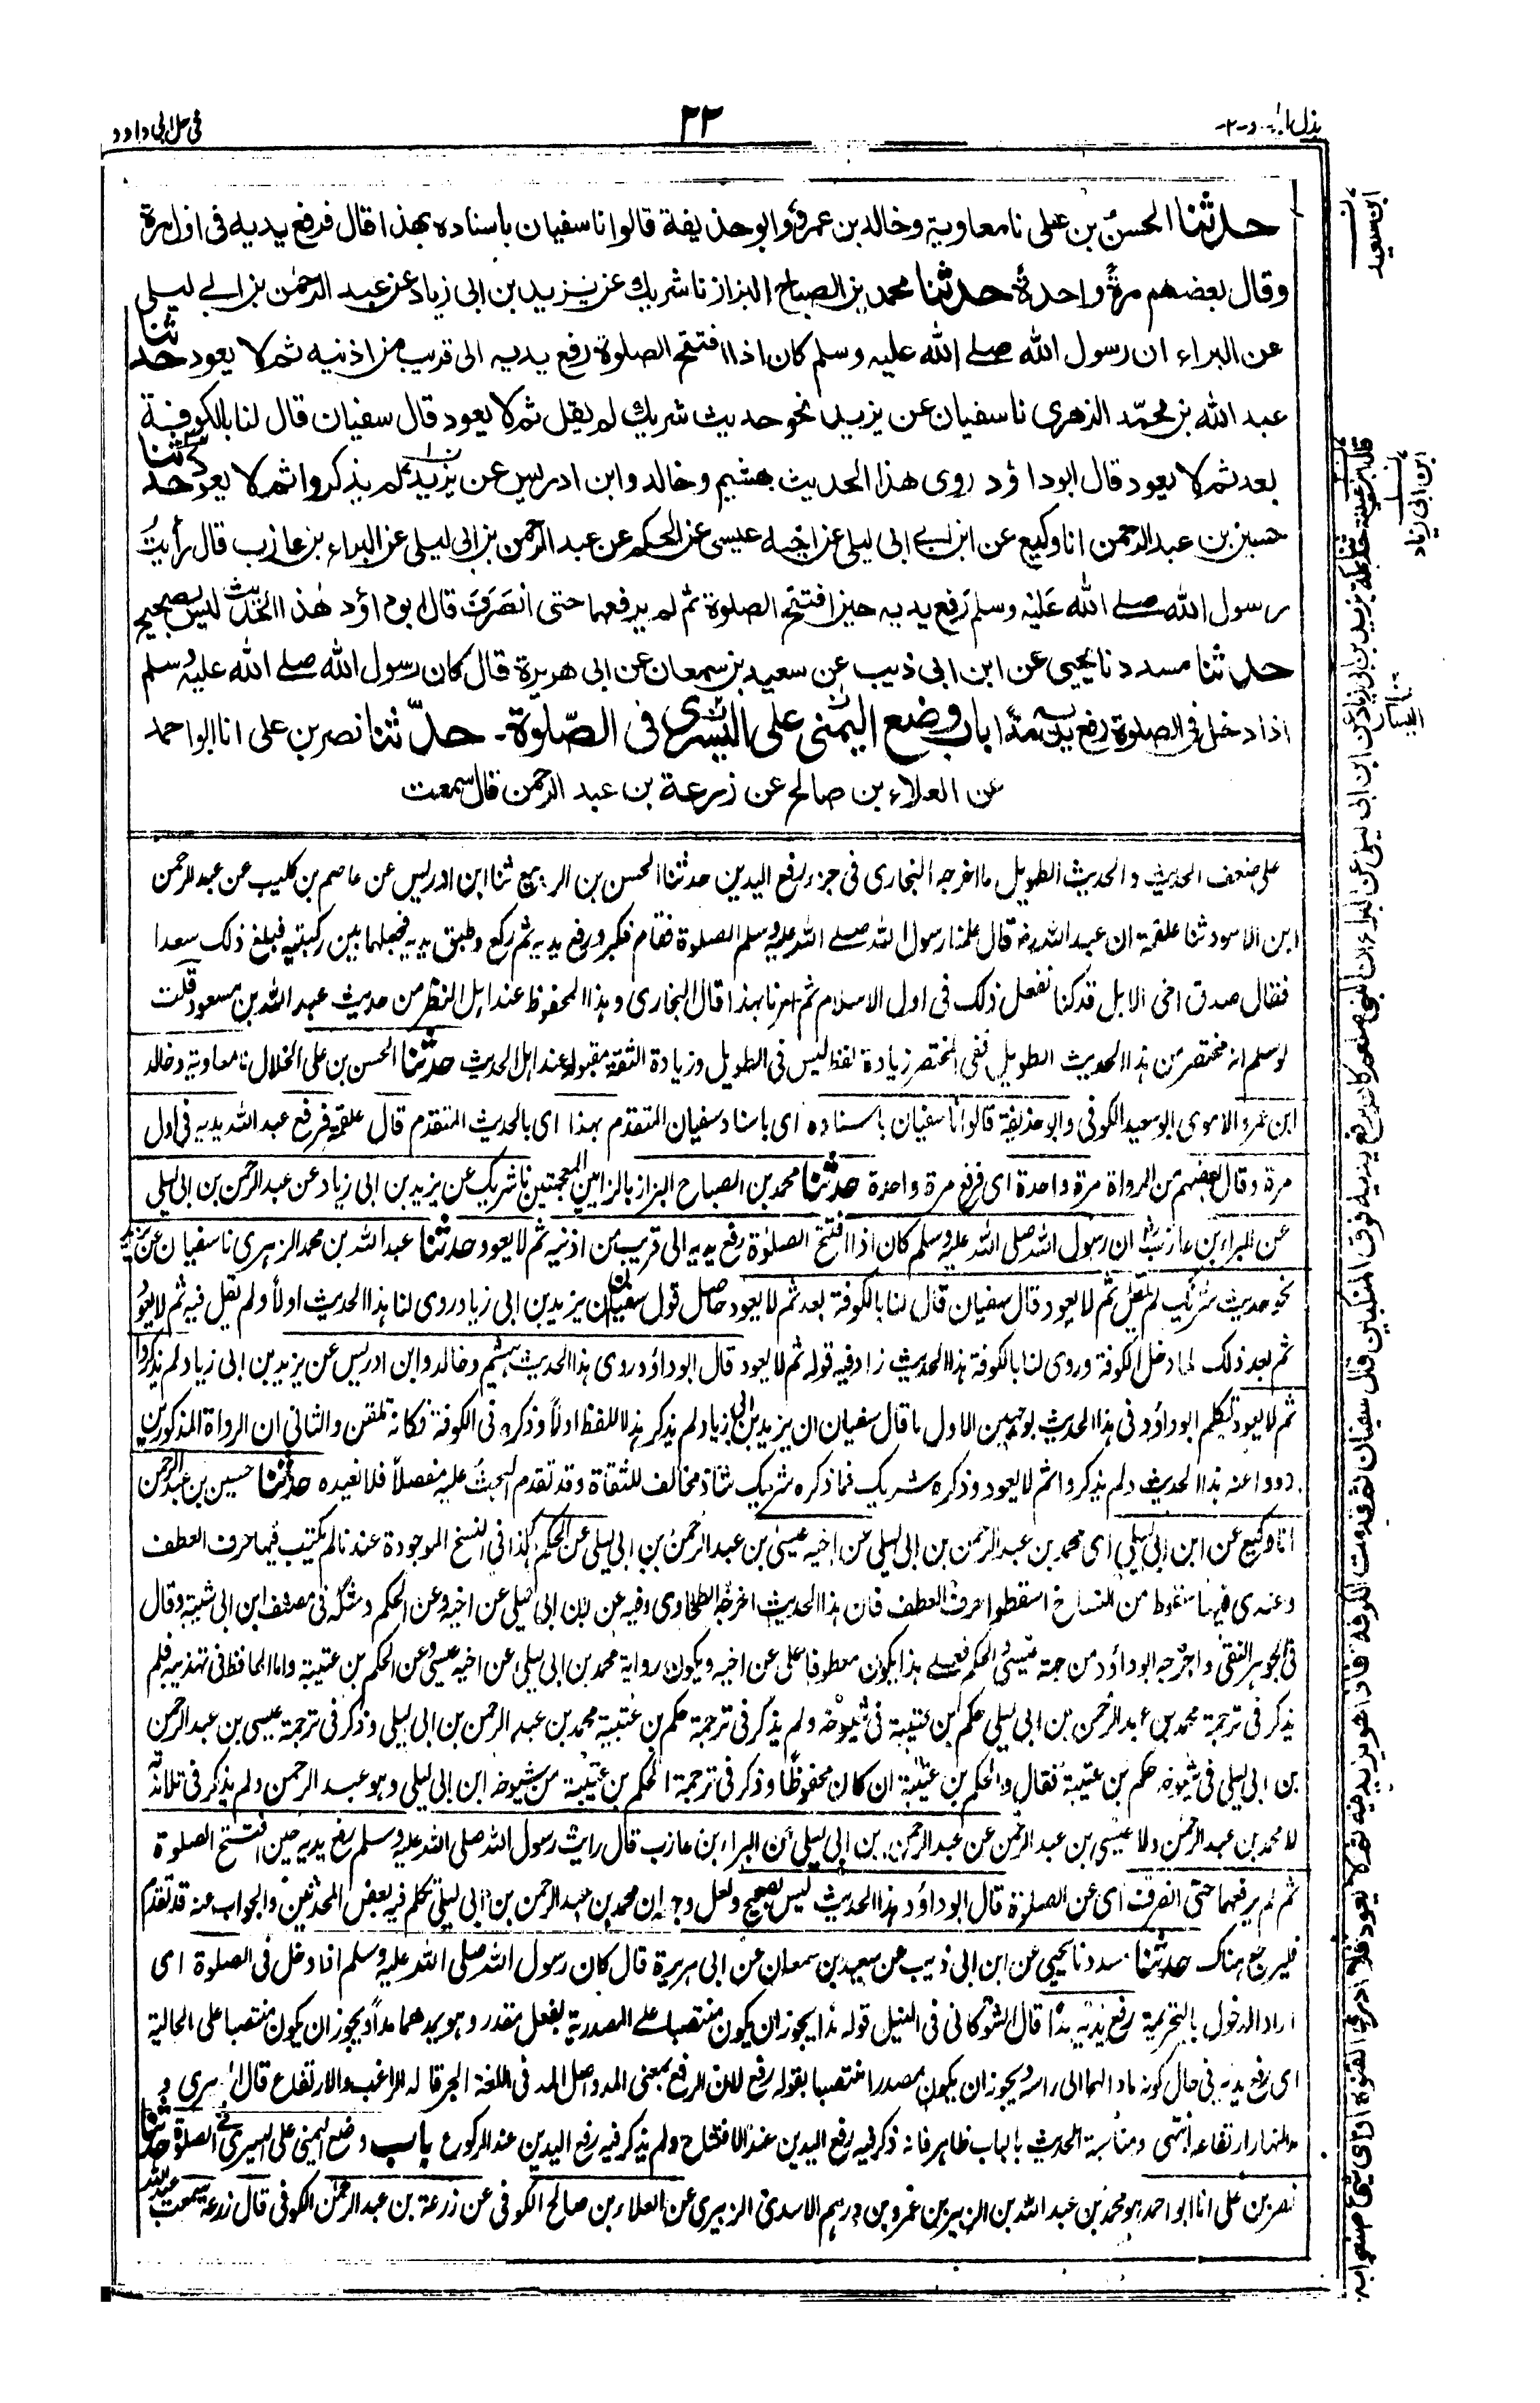 بذل المجهود-٢-
٢٢
في حل ابي داود
حدثنا الحسن بن علي نا معاوية وخالد بن عمرو وابو حذيفة قالوا نا سفيان باسناده بهذا قال فرفع يديه في اول مرة
وقال بعضهم مرة واحدة حدثنا محمد بن الصباح البزاز نا شريك عن يزيد بن ابي زياد عن عبد الرحمن بن ابي ليلى
عن البراء ان رسول الله صلے الله عليه وسلم كان اذا افتتح الصلوة رفع يديه الى قريب من اذنيه ثم لا يعود حدثنا
عبد الله بن محمد الزهري نا سفيان عن يزيد نحو حديث شريك لم يقل ثم لا يعود قال سفيان قال لنا بالكوفة
بعد ثم لا يعود قال ابو داؤد روى هذا الحديث هشيم وخالد وابن ادريس عن يزيد لم يذكروا ثم لا يعود حدثنا
حسين بن عبد الرحمن انا وكيع عن ابن ابي ليلى عن اخيه عيسى عن الحكم عن عبد الرحمن بن ابي ليلى عن البراء بن عازب قال رأيت
رسول الله صلے الله عليه وسلم رفع يديه حين افتتح الصلوة ثم لم يرفعهما حتى انصرف قال ابو داؤد هذا الحديث ليس بصحيح
حدثنا مسدد نا يحيى عن ابن ابي ذيب عن سعيد بن سمعان عن ابي هريرة قال كان رسول الله صلے الله عليه وسلم
اذا دخل في الصلوة رفع يديه مدا باب وضع اليمنى على اليسرى في الصلوة۔ حدثنا نصر بن علي انا ابو احمد
عن العلاء بن صالح عن زرعة بن عبد الرحمن قال سمعت
على ضعف الحديث والحديث الطويل ما اخرجه البخاري في جزء رفع اليدين حدثنا الحسن بن الربيع ثنا ابن ادريس عن عاصم بن كليب عن عبد الرحمن
ابن الاسود ثنا علقمة ان عبد الله رضه قال علمنا رسول الله صلے الله عليه وسلم الصلوة فقام فكبر ورفع يديه ثم ركع وطبق يديه فجعلهما بين ركبتيه فبلغ ذلك سعدا
فقال صدق اخي الا بل قد كنا نفعل ذلك في اول الاسلام ثم امرنا بهذا قال البخاري وهذا المحفوظ عند اهل النظر من حديث عبد الله بن مسعود قلت
لو سلم انه مختصر من هذا الحديث الطويل ففي المختصر زيادة لفظ ليس في الطويل وزيادة الثقة مقبولة عند اهل الحديث حدثنا الحسن بن علي الخلال نا معاوية وخالد
ابن عمرو الاموي ابو سعيد الكوفي وابو حذيفة قالوا نا سفيان باسناده اي باسناد سفيان المتقدم بهذا اي بالحديث المتقدم قال علقمة فرفع عبد الله يديه في اول
مرة وقال بعضهم من الرواة مرة واحدة اي فرفع مرة واحدة حدثنا محمد بن الصباح البزاز بالزايين المعجمتين نا شريك عن يزيد بن ابي زياد عن عبد الرحمن بن ابي ليلى
عن البراء بن عازب ان رسول الله صلى الله عليه وسلم كان اذا افتتح الصلوة رفع يديه الى قريب من اذنيه ثم لا يعود حدثنا عبد الله بن محمد الزهري نا سفيان عن يزيد
نحو حديث شريك لم يقل ثم لا يعود قال سفيان قال لنا بالكوفة بعد ثم لا يعود حاصل قول سفيان ان يزيد بن ابي زياد روى لنا هذا الحديث اولا ولم يقل فيه ثم لا يعود
ثم بعد ذلك لما دخل الكوفة وروى لنا بالكوفة هذا الحديث زاد فيه قوله ثم لا يعود قال ابو داؤد وروى هذا الحديث هشيم وخالد وابن ادريس عن يزيد بن ابي زياد لم يذكروا
ثم لا يعود تكلم ابو داؤد في هذا الحديث بوجهين الاول ما قال سفيان ان يزيد بن ابي زياد لم يذكر هذا اللفظ اولا وذكره في الكوفة فكانه تلقن والثاني ان الرواة المذكورين
رووا عنه هذا الحديث ولم يذكروا ثم لا يعود وذكره شريك فما ذكره شريك شاذ مخالف للثقاة وقد تقدم البحث عليه مفصلا فلا نعيده حدثنا حسين بن عبد الرحمن
انا وكيع عن ابن ابي ليلى اي محمد بن عبد الرحمن بن ابي ليلى عن اخيه عيسى بن عبد الرحمن بن ابي ليلى عن الحكم كذا في النسخ الموجودة عندنا لم يكتب فيها حرف العطف
وعندي فيها سقوط من النساخ اسقطوا حرف العطف فان هذا الحديث اخرجه الطحاوي وفيه عن ابن ابي ليلى عن اخيه وعن الحكم ومثله في مصنف ابن ابي شيبة وقال
في الجوهر النقي واخرجه ابو داؤد من جهة عيسى والحكم فعلى هذا يكون معطوفا على عن اخيه ويكون رواية محمد بن ابي ليلى عن اخيه عيسى وعن الحكم بن عتيبة واما الحافظ في تهذيبه فلم
يذكر في ترجمة محمد بن عبد الرحمن بن ابي ليلى حكم بن عتيبة في شيوخه ولم يذكر في ترجمة حكم بن عتيبة محمد بن عبد الرحمن بن ابي ليلى وذكر في ترجمة عيسى بن عبد الرحمن
بن ابي ليلى في شيوخه حكم بن عتيبة فقال والحكم بن عتيبة ان كان محفوظا وذكر في ترجمة الحكم بن عتيبة من شيوخه ابن ابي ليلى وهو عبد الرحمن ولم يذكر في تلامذته
لا محمد بن عبد الرحمن ولا عيسى ابن عبد الرحمن عن عبد الرحمن بن ابي ليلى عن البراء بن عازب قال رايت رسول الله صلى الله عليه وسلم رفع يديه حين افتتح الصلوة
ثم لم يرفعهما حتى انصرف اي عن الصلوة قال ابو داؤد هذا الحديث ليس بصحيح ولعل وجهه ان محمد بن عبد الرحمن بن ابي ليلى تكلم فيه بعض المحدثين والجواب عنه قد تقدم
فليرجع هناك حدثنا مسدد نا يحيى عن ابن ابي ذيب عن سعيد بن سمعان عن ابي هريرة قال كان رسول الله صلى الله عليه وسلم اذا دخل في الصلوة اي
اراد الدخول بالتحريمة رفع يديه مدا قال الشوكاني في النيل قوله مدا يجوز ان يكون منتصبا على المصدرية بفعل مقدر وهو يمدهما مدا ويجوز ان يكون منتصبا على الحالية
اي رفع يديه في حال كونه مادا لهما الى راسه ويجوز ان يكون مصدرا منتصبا بقوله رفع لان الرفع بمعنى المد واصل المد في اللغة الجر قاله الراغب والارتفاع قال الجوهري و
مد النهار ارتفاعه انتهى ومناسبة الحديث بالباب ظاهر فانه ذكر فيه رفع اليدين عند الافتتاح ولم يذكر فيه رفع اليدين عند الركوع باب وضع اليمنى على اليسرى في الصلوة حدثنا
نصر بن علي انا ابو احمد هو محمد بن عبد الله بن الزبير بن عمرو بن درهم الاسدي الزبيري عن العلاء بن صالح الكوفي عن زرعة بن عبد الرحمن الكوفي قال زرعة سمعت عبد الله
ابن سعيد
ابن ابي زياد
اليسار